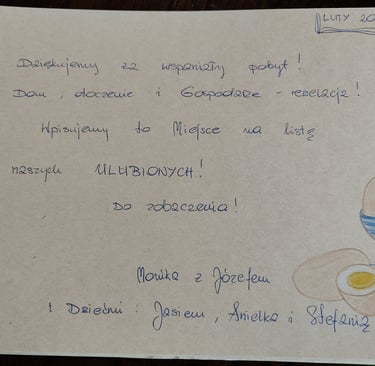 LUTY 20
Dziękujemy za wspaniały pobyt!
Dom, otoczenie i Gospodarze - rewelacja!
Wpisujemy to Miejsce na listę
naszych ULUBIONYCH!
Do zobaczenia!
Monika z Józefem
i Dziećmi: Jasiem, Anielką i Stefanią